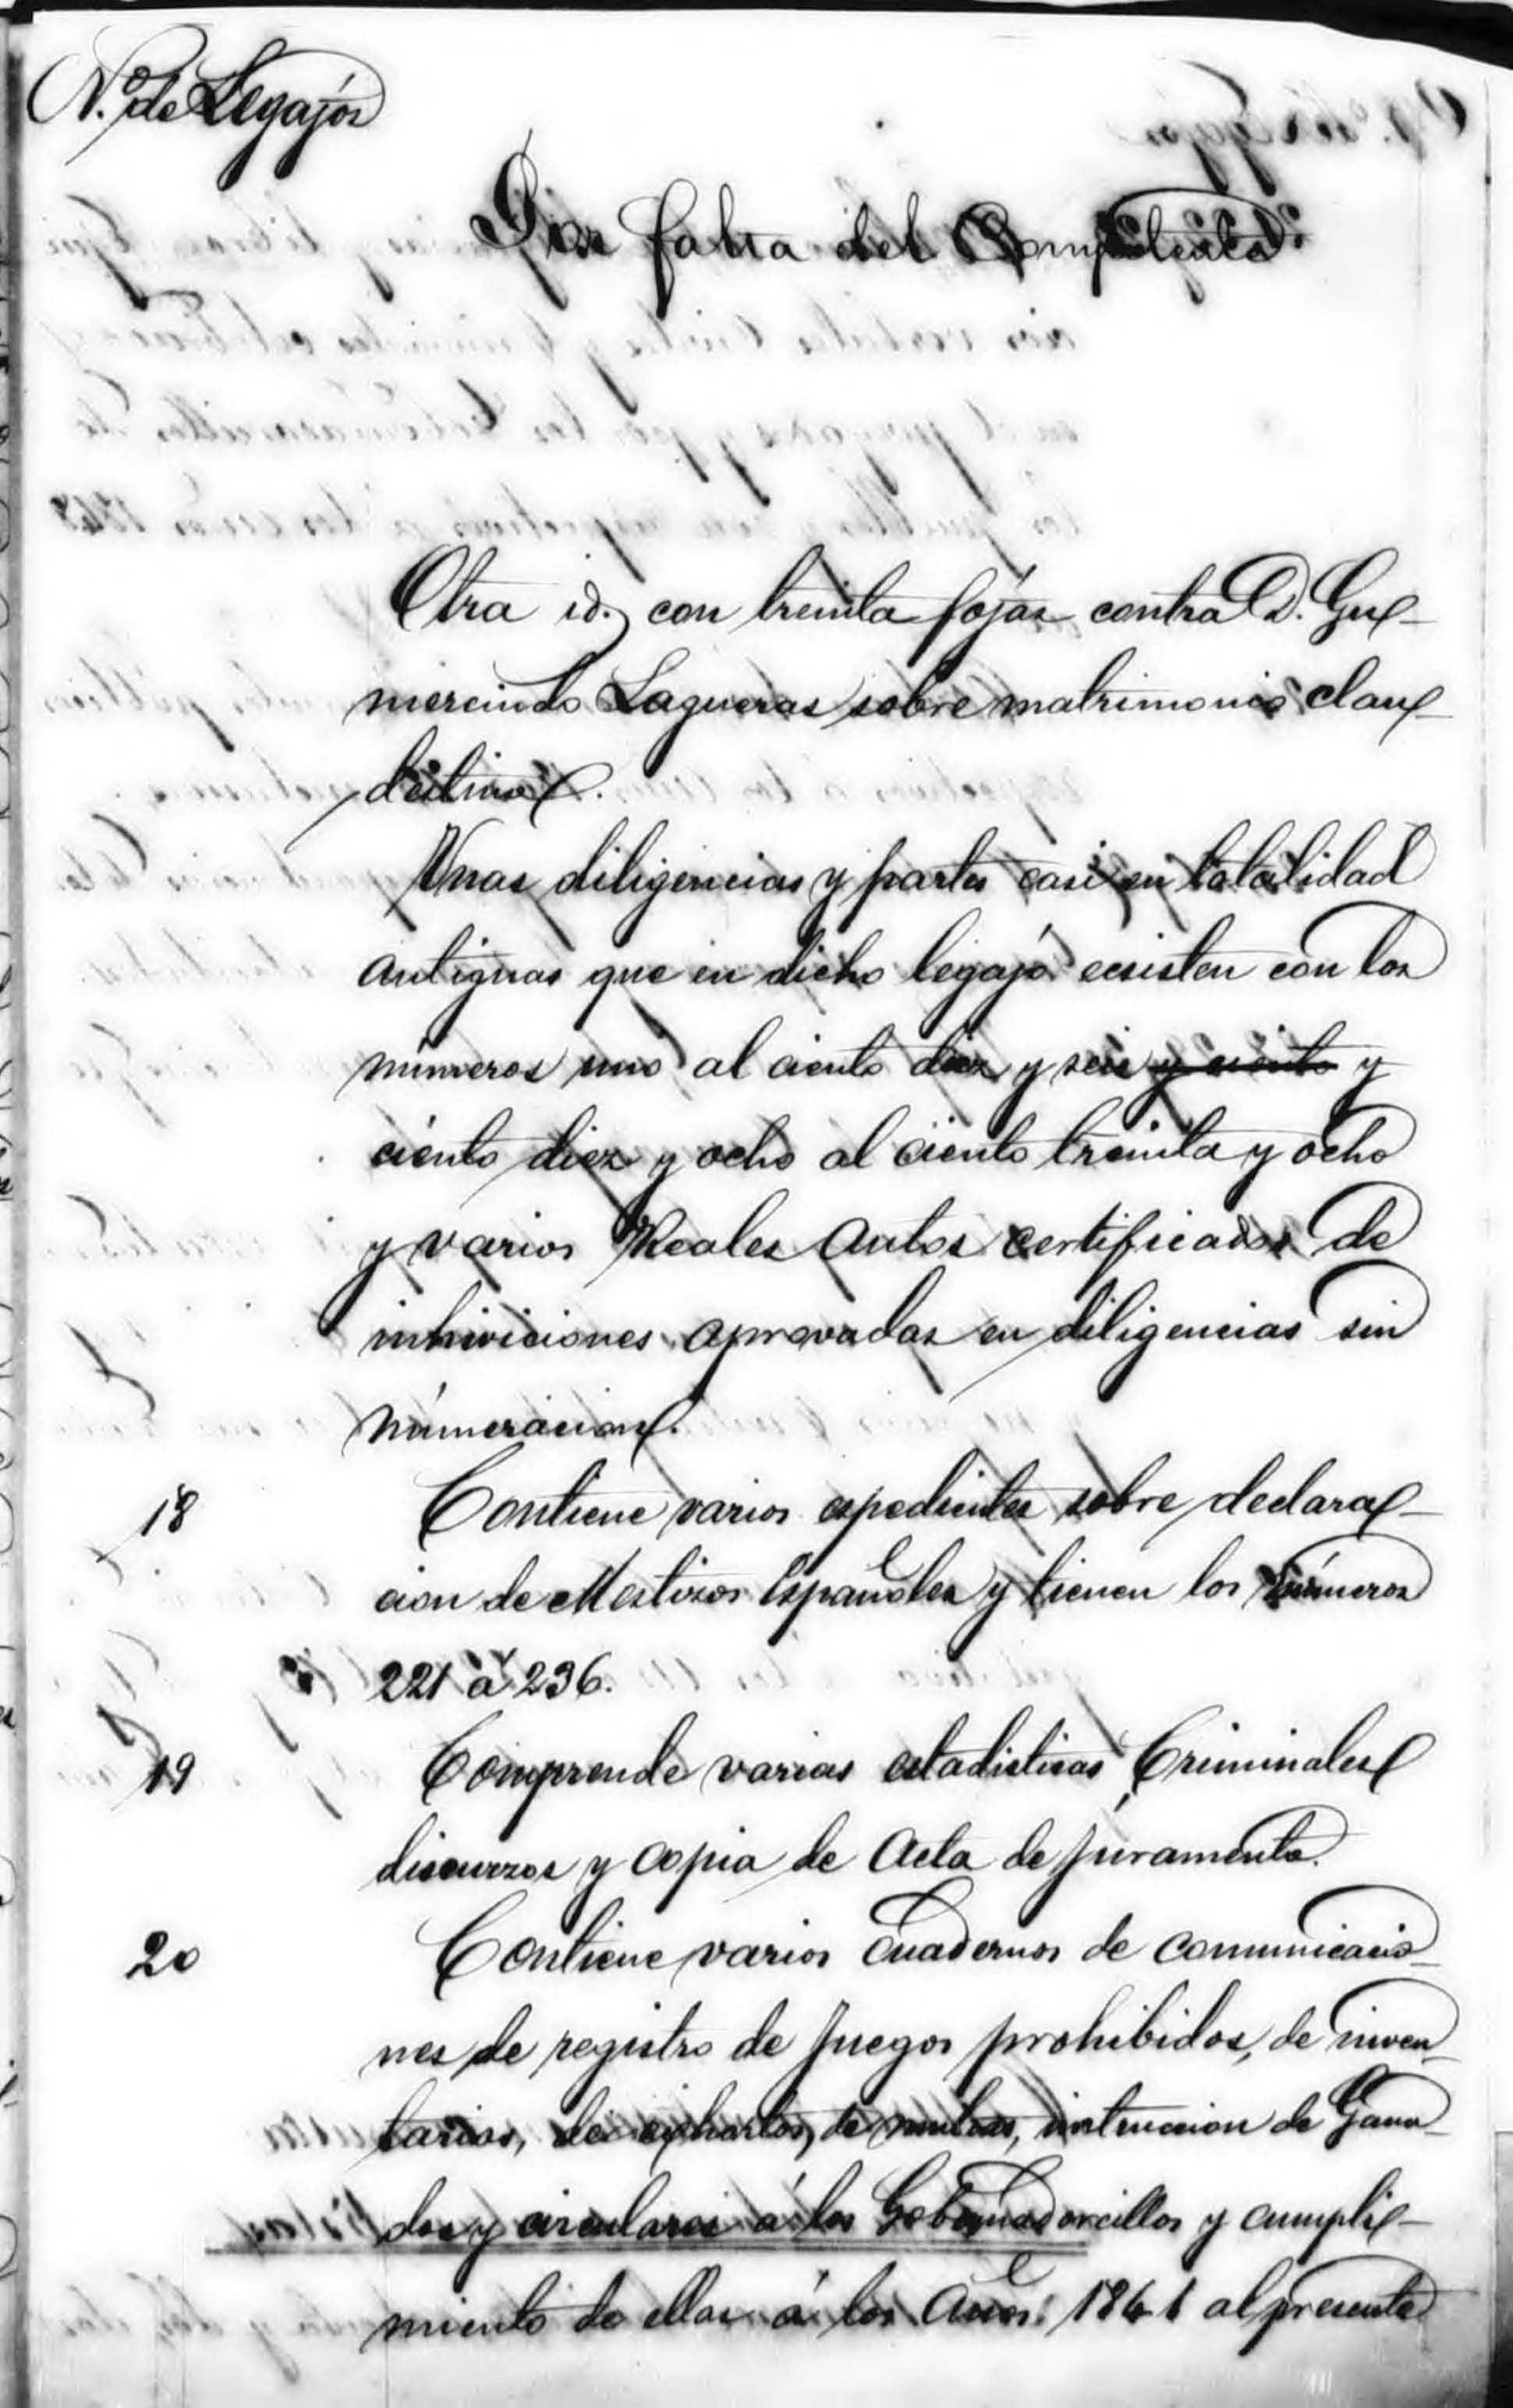 N.º de Legajos
Por falta del Competente
Otra id. con treinta fojas contra D. Gu-
mercindo Lagueras sobre matrimonio clan-
destino.
Unas diligencias y partes casi en totalidad
antiguas que en dicho legajo ecsisten con los
números uno al ciento diez y seis y ciento y
ciento diez y ocho al ciento treinta y ocho
y varios Reales Autos certificados de
inhiviciones aprovadas en diligencias sin
númeracion.
18 Contiene varios espedientes sobre declara-
cion de Mestizos Españoles y tienen los números
221 á 236.
19 Comprende varias estadisticas Criminales
discurzos y copia de Acta de juramento.
20 Contiene varios Cuadernos de comunicacio-
nes de registro de Juegos prohibidos, de inven-
tarios, de exhortos, de multas, instruccion de Gana-
dos y circulares á los Gobernadorcillos y cumpli-
miento de ellas á los Años 1841 al presente